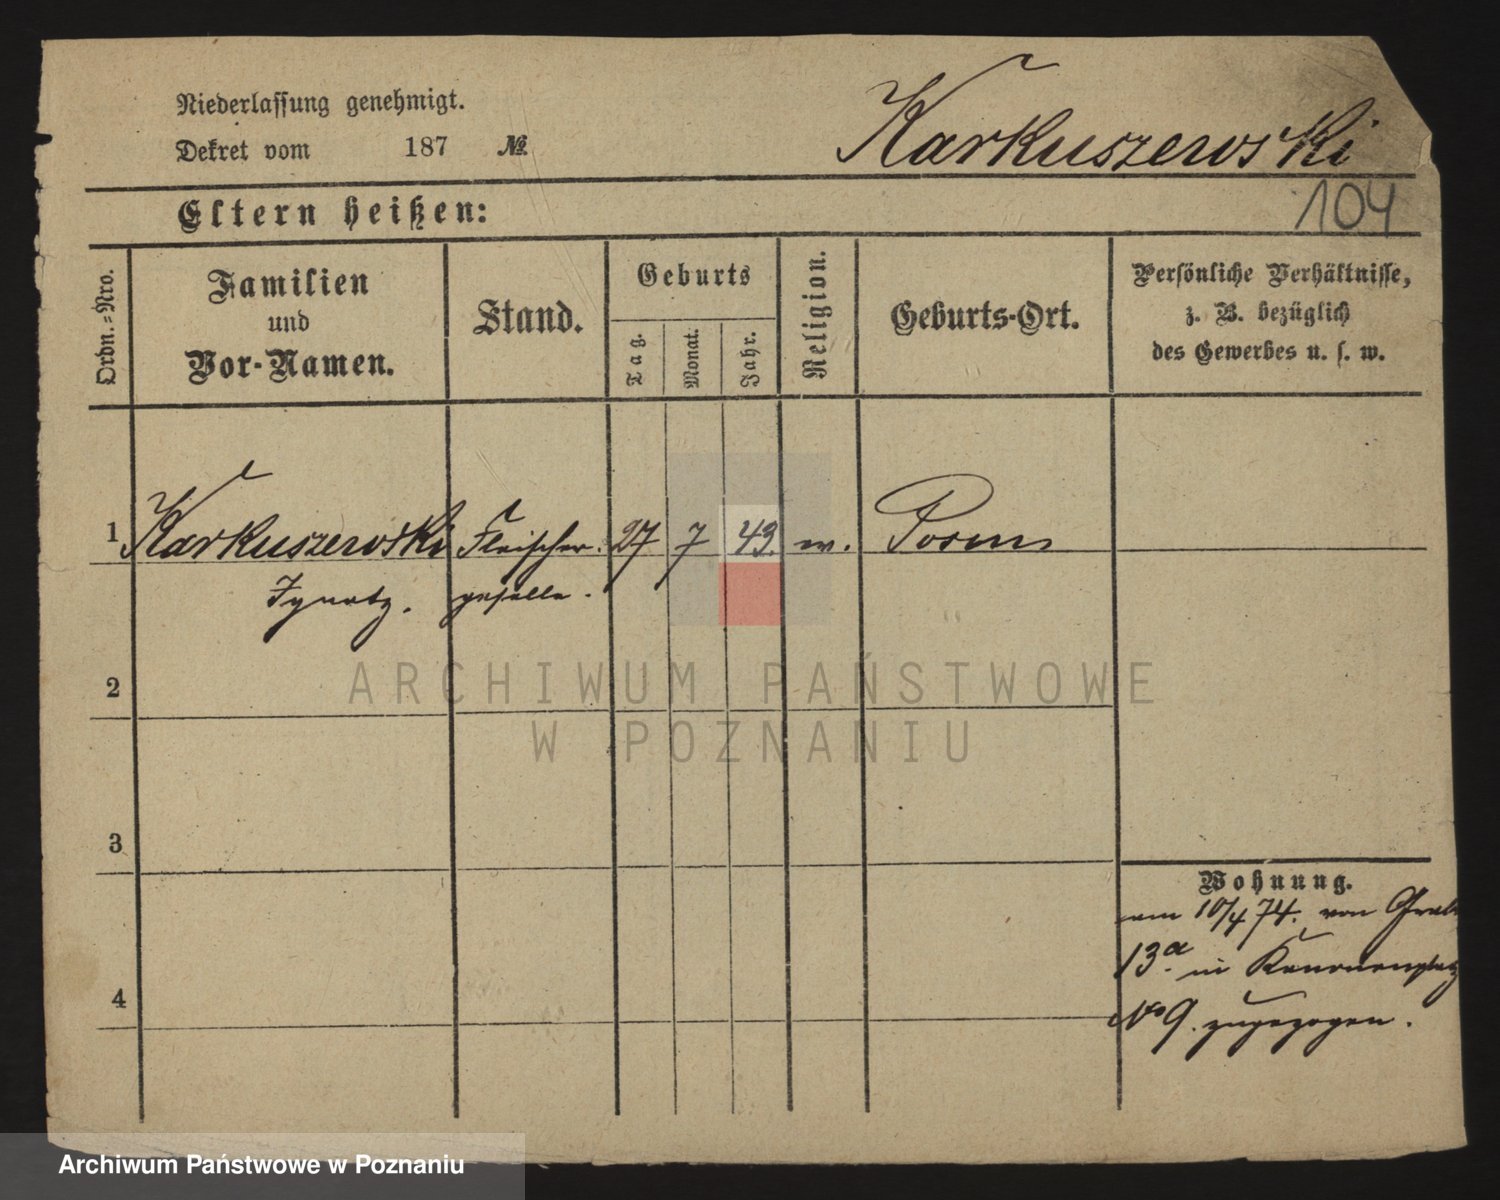 Niederlassung genehmigt.
Dekret vom 187 №
Karkuszewski
104
Eltern heißen:
Ordn.-Nro.
Familien
und
Vor-Namen.
Stand.
Geburts
Tag.
Monat.
Jahr.
Religion.
Geburts-Ort.
Persönliche Verhältnisse,
z. B. bezüglich
des Gewerbes u. s. w.
1 Karkuszewski Fleischer 27 7 43. Posen
Ignatz. geselle.
2
3
4
Wohnung.
am 10/4 74. von
13a. in Kanonenplatz
No 9. zugezogen.
ARCHIWUM PAŃSTWOWE
W POZNANIU
Archiwum Państwowe w Poznaniu